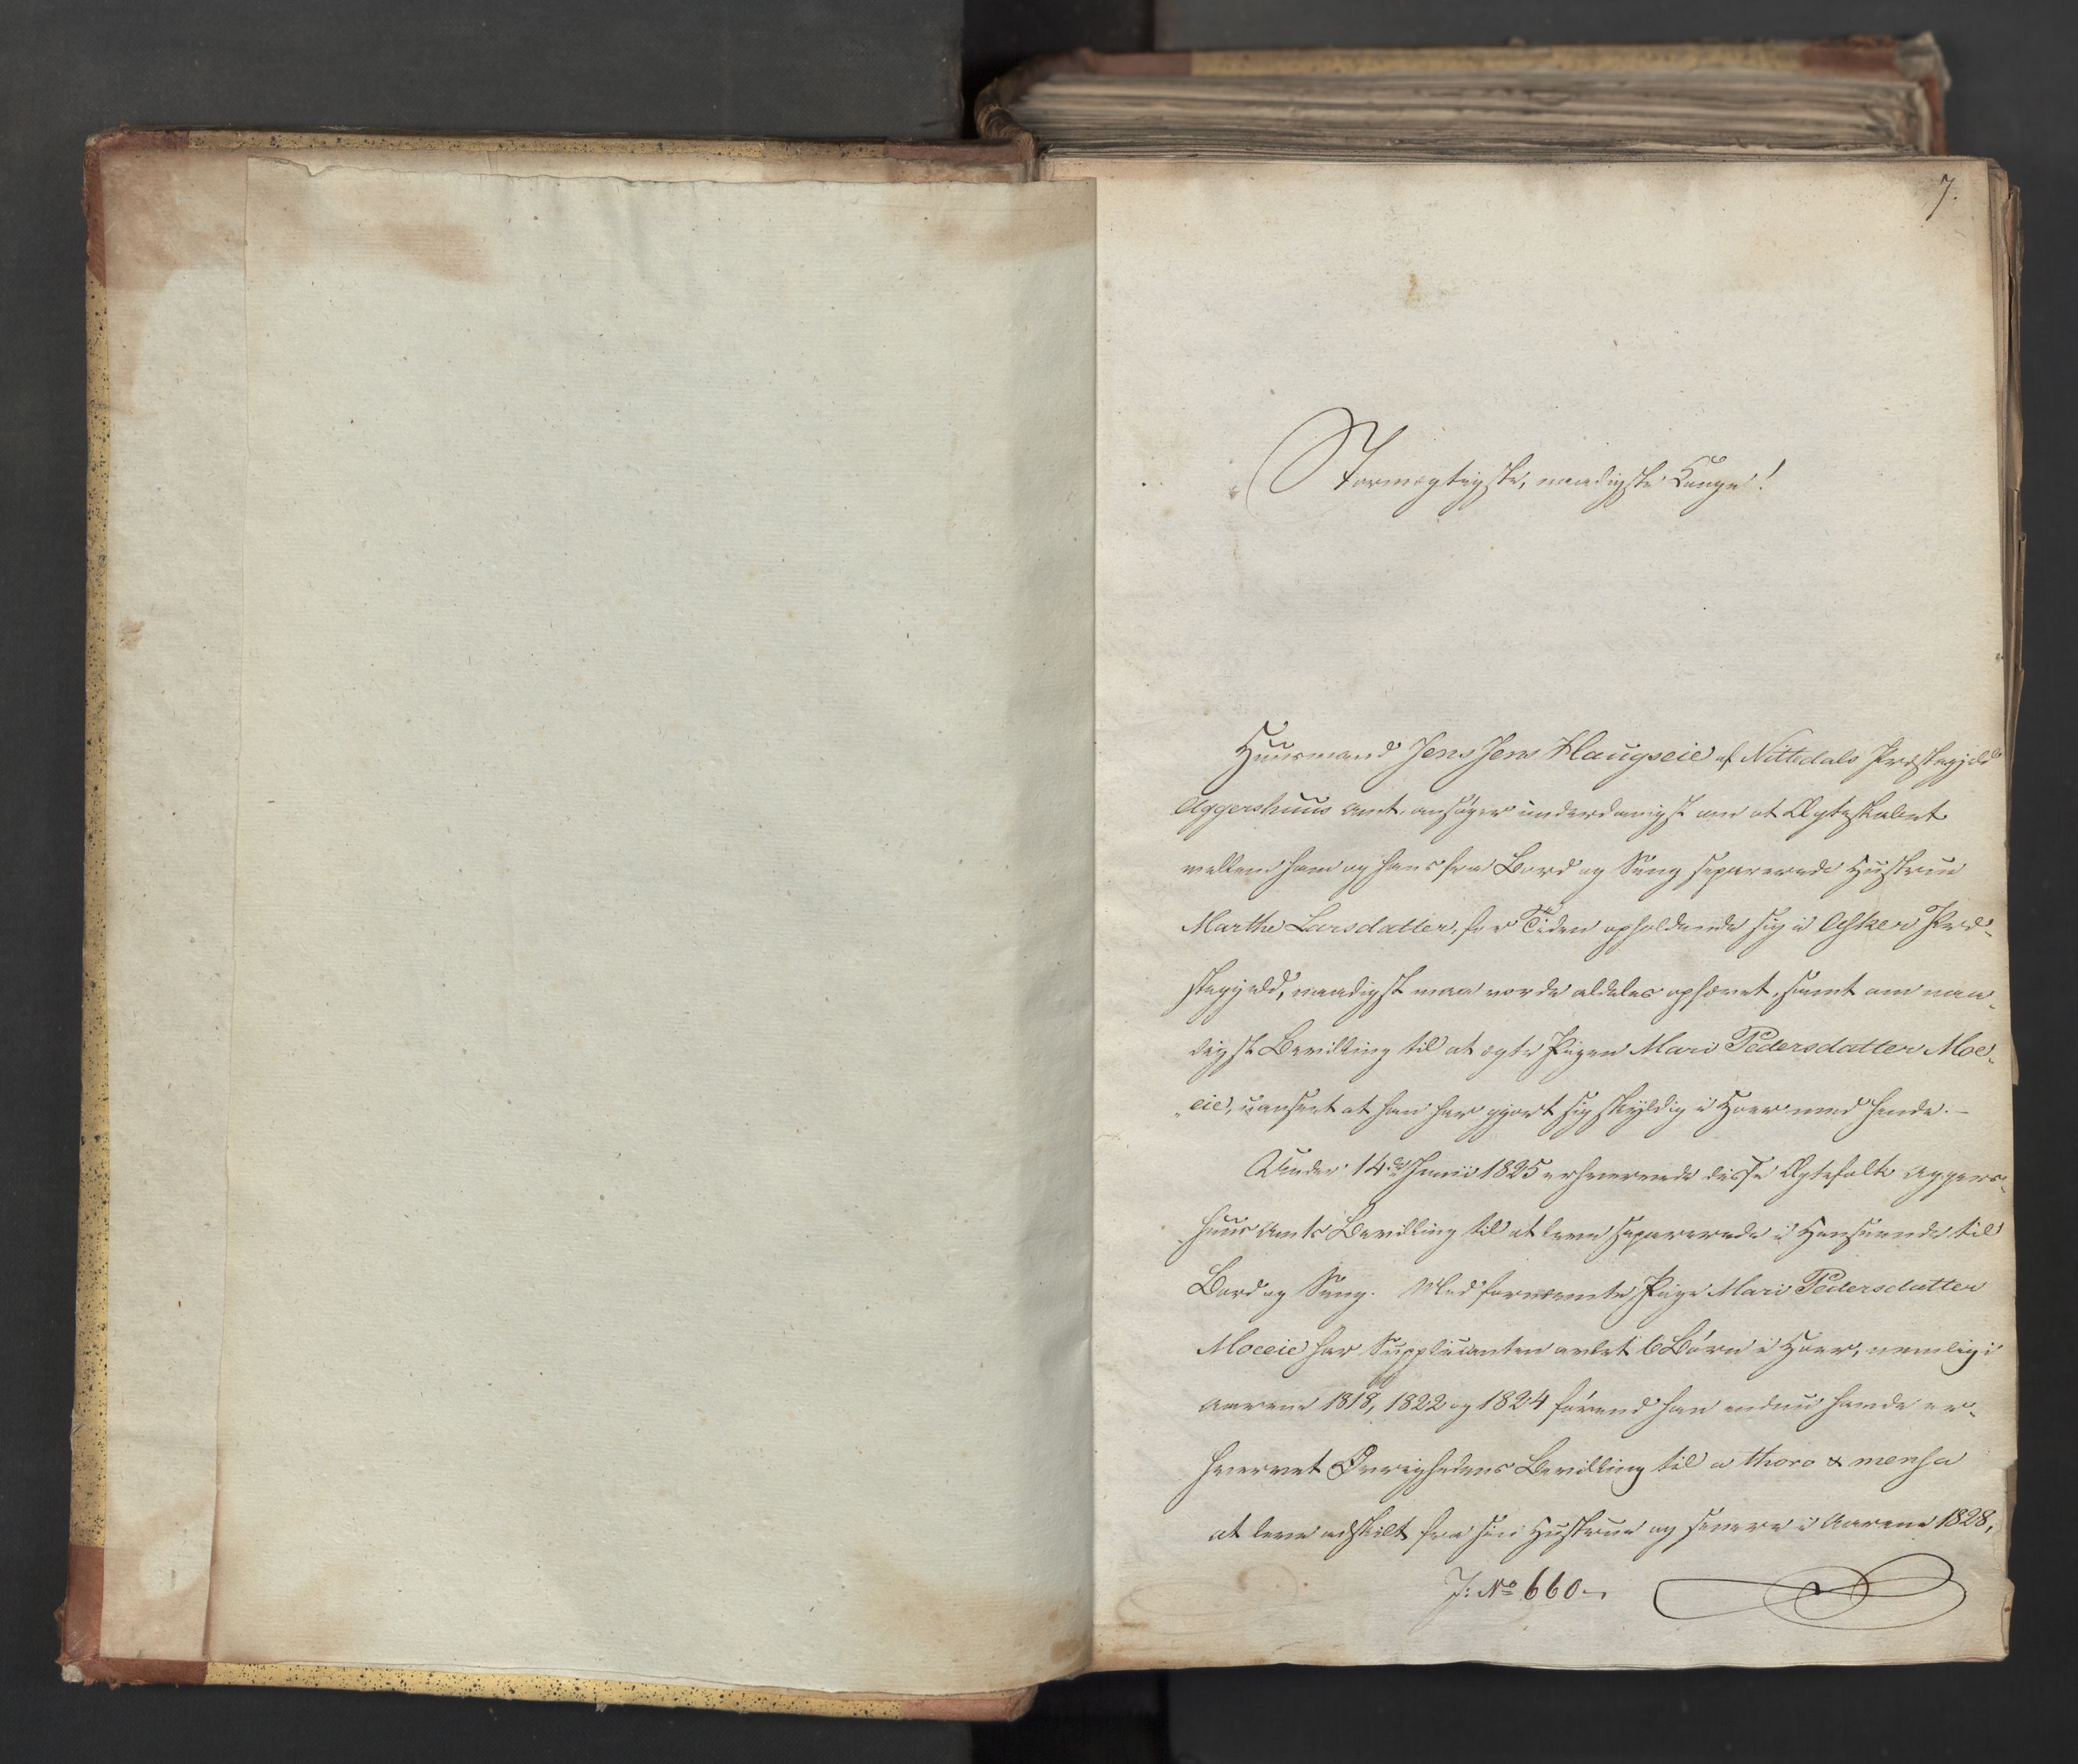 7.
Stormægtigste, naadigste Konge!
Huusmand Jens Jens Haugseie af Nittedals Præstegjeld
Aggershuus Amt, ansøger underdanigst om at Ægteskabet
mellem ham og hans fra Bord og Seng separerede Hustrue
Marthe Larsdatter, for Tiden opholdende sig i Asker Præ-
stegjeld, naadigst maa vorde aldeles ophævet, samt om naa-
digst Bevilling til at ægte Pigen Mari Pedersdatter Moe-
eie, uanseet at han har gjort sig skyldig i Hoer med hende. –
Under 14de Junii 1825 erhvervede disse Ægtefolk Aggers-
huus Amts Bevilling til at leve separerede i Henseende til
Bord og Seng. Med fornævnte Pige Mari Pedersdatter
Moeeie har Supplicanten avlet 6 Børn i Hoer, nemlig i
Aarene 1818, 1822 og 1824 førend han endnu havde er-
hvervet Øvrighedens Bevilling til a thoro & mensa
at leve adskilt fra sin Hustrue og senere i Aarene 1828,
J: No 660.